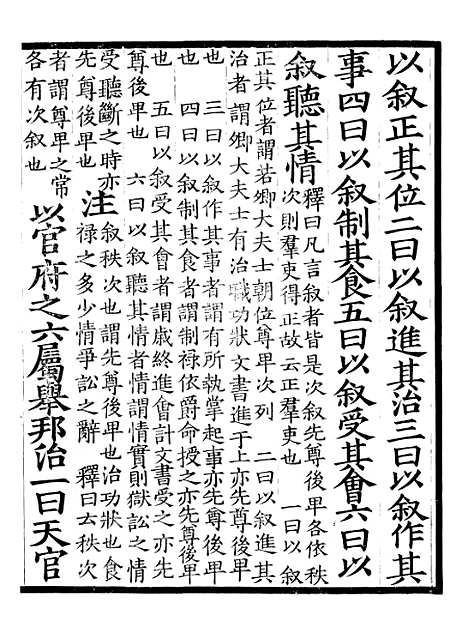 以叙正其位二曰以叙進其治三曰以叙作其
事四曰以叙制其食五曰以叙受其會六曰以
叙聽其情
釋曰凡言叙者皆是次叙先尊後卑各依秩
次則羣吏得正故云正羣吏也　一曰以叙
正其位者謂若卿大夫士朝位尊卑次列　二曰以叙進其
治者謂卿大夫士有治職功狀文書進于上亦先尊後卑
也　三曰以叙作其事者謂有所執掌起事亦先尊後卑
也　四曰以叙制其食者謂制禄依爵命授之亦先尊後卑
也　五曰以叙受其會者謂歲終進會計文書受之亦先
尊後卑也　六曰以叙聽其情者情謂情實則獄訟之情
受聽斷之時亦
先尊後卑也
注
叙秩次也謂先尊後卑也治功狀也食
禄之多少情爭訟之辭　釋曰云秩次
者謂尊卑之常
各有次叙也
以官府之六屬舉邦治一曰天官